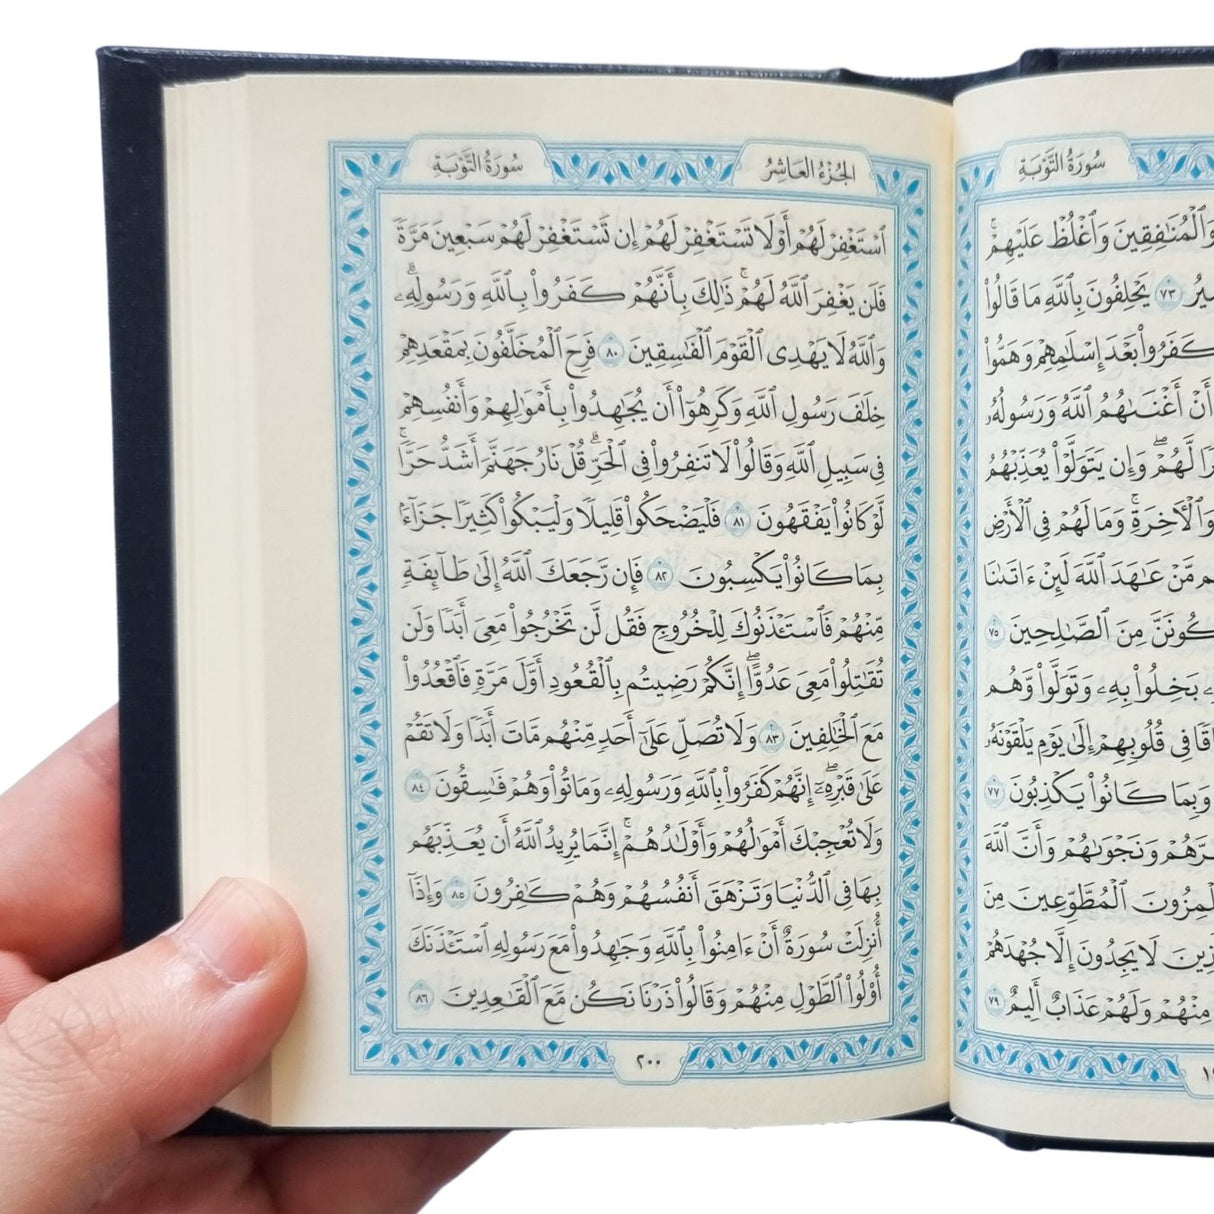 سُورَةُ التَّوْبَةِ
وَٱلْمُنَٰفِقِينَ وَٱغْلُظْ عَلَيْهِمْۚ
٧٣ يَحْلِفُونَ بِٱللَّهِ مَا قَالُوا۟
كَفَرُوا۟ بَعْدَ إِسْلَٰمِهِمْ وَهَمُّوا۟
أَنْ أَغْنَىٰهُمُ ٱللَّهُ وَرَسُولُهُۥ
لَّهُمْۖ وَإِن يَتَوَلَّوْا۟ يُعَذِّبْهُمُ
وَٱلْءَاخِرَةِۚ وَمَا لَهُمْ فِى ٱلْأَرْضِ
مَّنْ عَٰهَدَ ٱللَّهَ لَئِنْ ءَاتَىٰنَا
مِنَ ٱلصَّٰلِحِينَ ٧٥
بَخِلُوا۟ بِهِۦ وَتَوَلَّوا۟ وَّهُم
فِى قُلُوبِهِمْ إِلَىٰ يَوْمِ يَلْقَوْنَهُۥ
وَبِمَا كَانُوا۟ يَكْذِبُونَ ٧٧
وَنَجْوَىٰهُمْ وَأَنَّ ٱللَّهَ
ٱلْمُطَّوِّعِينَ مِنَ
لَا يَجِدُونَ إِلَّا جُهْدَهُمْ
مِنْهُمْ وَلَهُمْ عَذَابٌ أَلِيمٌ ٧٩
الجُزْءُ العَاشِرُ سُورَةُ التَّوْبَةِ
ٱسْتَغْفِرْ لَهُمْ أَوْ لَا تَسْتَغْفِرْ لَهُمْ إِن تَسْتَغْفِرْ لَهُمْ سَبْعِينَ مَرَّةً
فَلَن يَغْفِرَ ٱللَّهُ لَهُمْۚ ذَٰلِكَ بِأَنَّهُمْ كَفَرُوا۟ بِٱللَّهِ وَرَسُولِهِۦۗ
وَٱللَّهُ لَا يَهْدِى ٱلْقَوْمَ ٱلْفَٰسِقِينَ ٨٠ فَرِحَ ٱلْمُخَلَّفُونَ بِمَقْعَدِهِمْ
خِلَٰفَ رَسُولِ ٱللَّهِ وَكَرِهُوٓا۟ أَن يُجَٰهِدُوا۟ بِأَمْوَٰلِهِمْ وَأَنفُسِهِمْ
فِى سَبِيلِ ٱللَّهِ وَقَالُوا۟ لَا تَنفِرُوا۟ فِى ٱلْحَرِّۗ قُلْ نَارُ جَهَنَّمَ أَشَدُّ حَرًّاۚ
لَّوْ كَانُوا۟ يَفْقَهُونَ ٨١ فَلْيَضْحَكُوا۟ قَلِيلًا وَلْيَبْكُوا۟ كَثِيرًا جَزَآءًۢ
بِمَا كَانُوا۟ يَكْسِبُونَ ٨٢ فَإِن رَّجَعَكَ ٱللَّهُ إِلَىٰ طَآئِفَةٍ
مِّنْهُمْ فَٱسْتَـْٔذَنُوكَ لِلْخُرُوجِ فَقُل لَّن تَخْرُجُوا۟ مَعِىَ أَبَدًا وَلَن
تُقَٰتِلُوا۟ مَعِىَ عَدُوًّاۖ إِنَّكُمْ رَضِيتُم بِٱلْقُعُودِ أَوَّلَ مَرَّةٍ فَٱقْعُدُوا۟
مَعَ ٱلْخَٰلِفِينَ ٨٣ وَلَا تُصَلِّ عَلَىٰٓ أَحَدٍ مِّنْهُم مَّاتَ أَبَدًا وَلَا تَقُمْ
عَلَىٰ قَبْرِهِۦٓۖ إِنَّهُمْ كَفَرُوا۟ بِٱللَّهِ وَرَسُولِهِۦ وَمَاتُوا۟ وَهُمْ فَٰسِقُونَ ٨٤
وَلَا تُعْجِبْكَ أَمْوَٰلُهُمْ وَأَوْلَٰدُهُمْۚ إِنَّمَا يُرِيدُ ٱللَّهُ أَن يُعَذِّبَهُم
بِهَا فِى ٱلدُّنْيَا وَتَزْهَقَ أَنفُسُهُمْ وَهُمْ كَٰفِرُونَ ٨٥ وَإِذَآ
أُنزِلَتْ سُورَةٌ أَنْ ءَامِنُوا۟ بِٱللَّهِ وَجَٰهِدُوا۟ مَعَ رَسُولِهِ ٱسْتَـْٔذَنَكَ
أُو۟لُوا۟ ٱلطَّوْلِ مِنْهُمْ وَقَالُوا۟ ذَرْنَا نَكُن مَّعَ ٱلْقَٰعِدِينَ ٨٦
٢٠٠